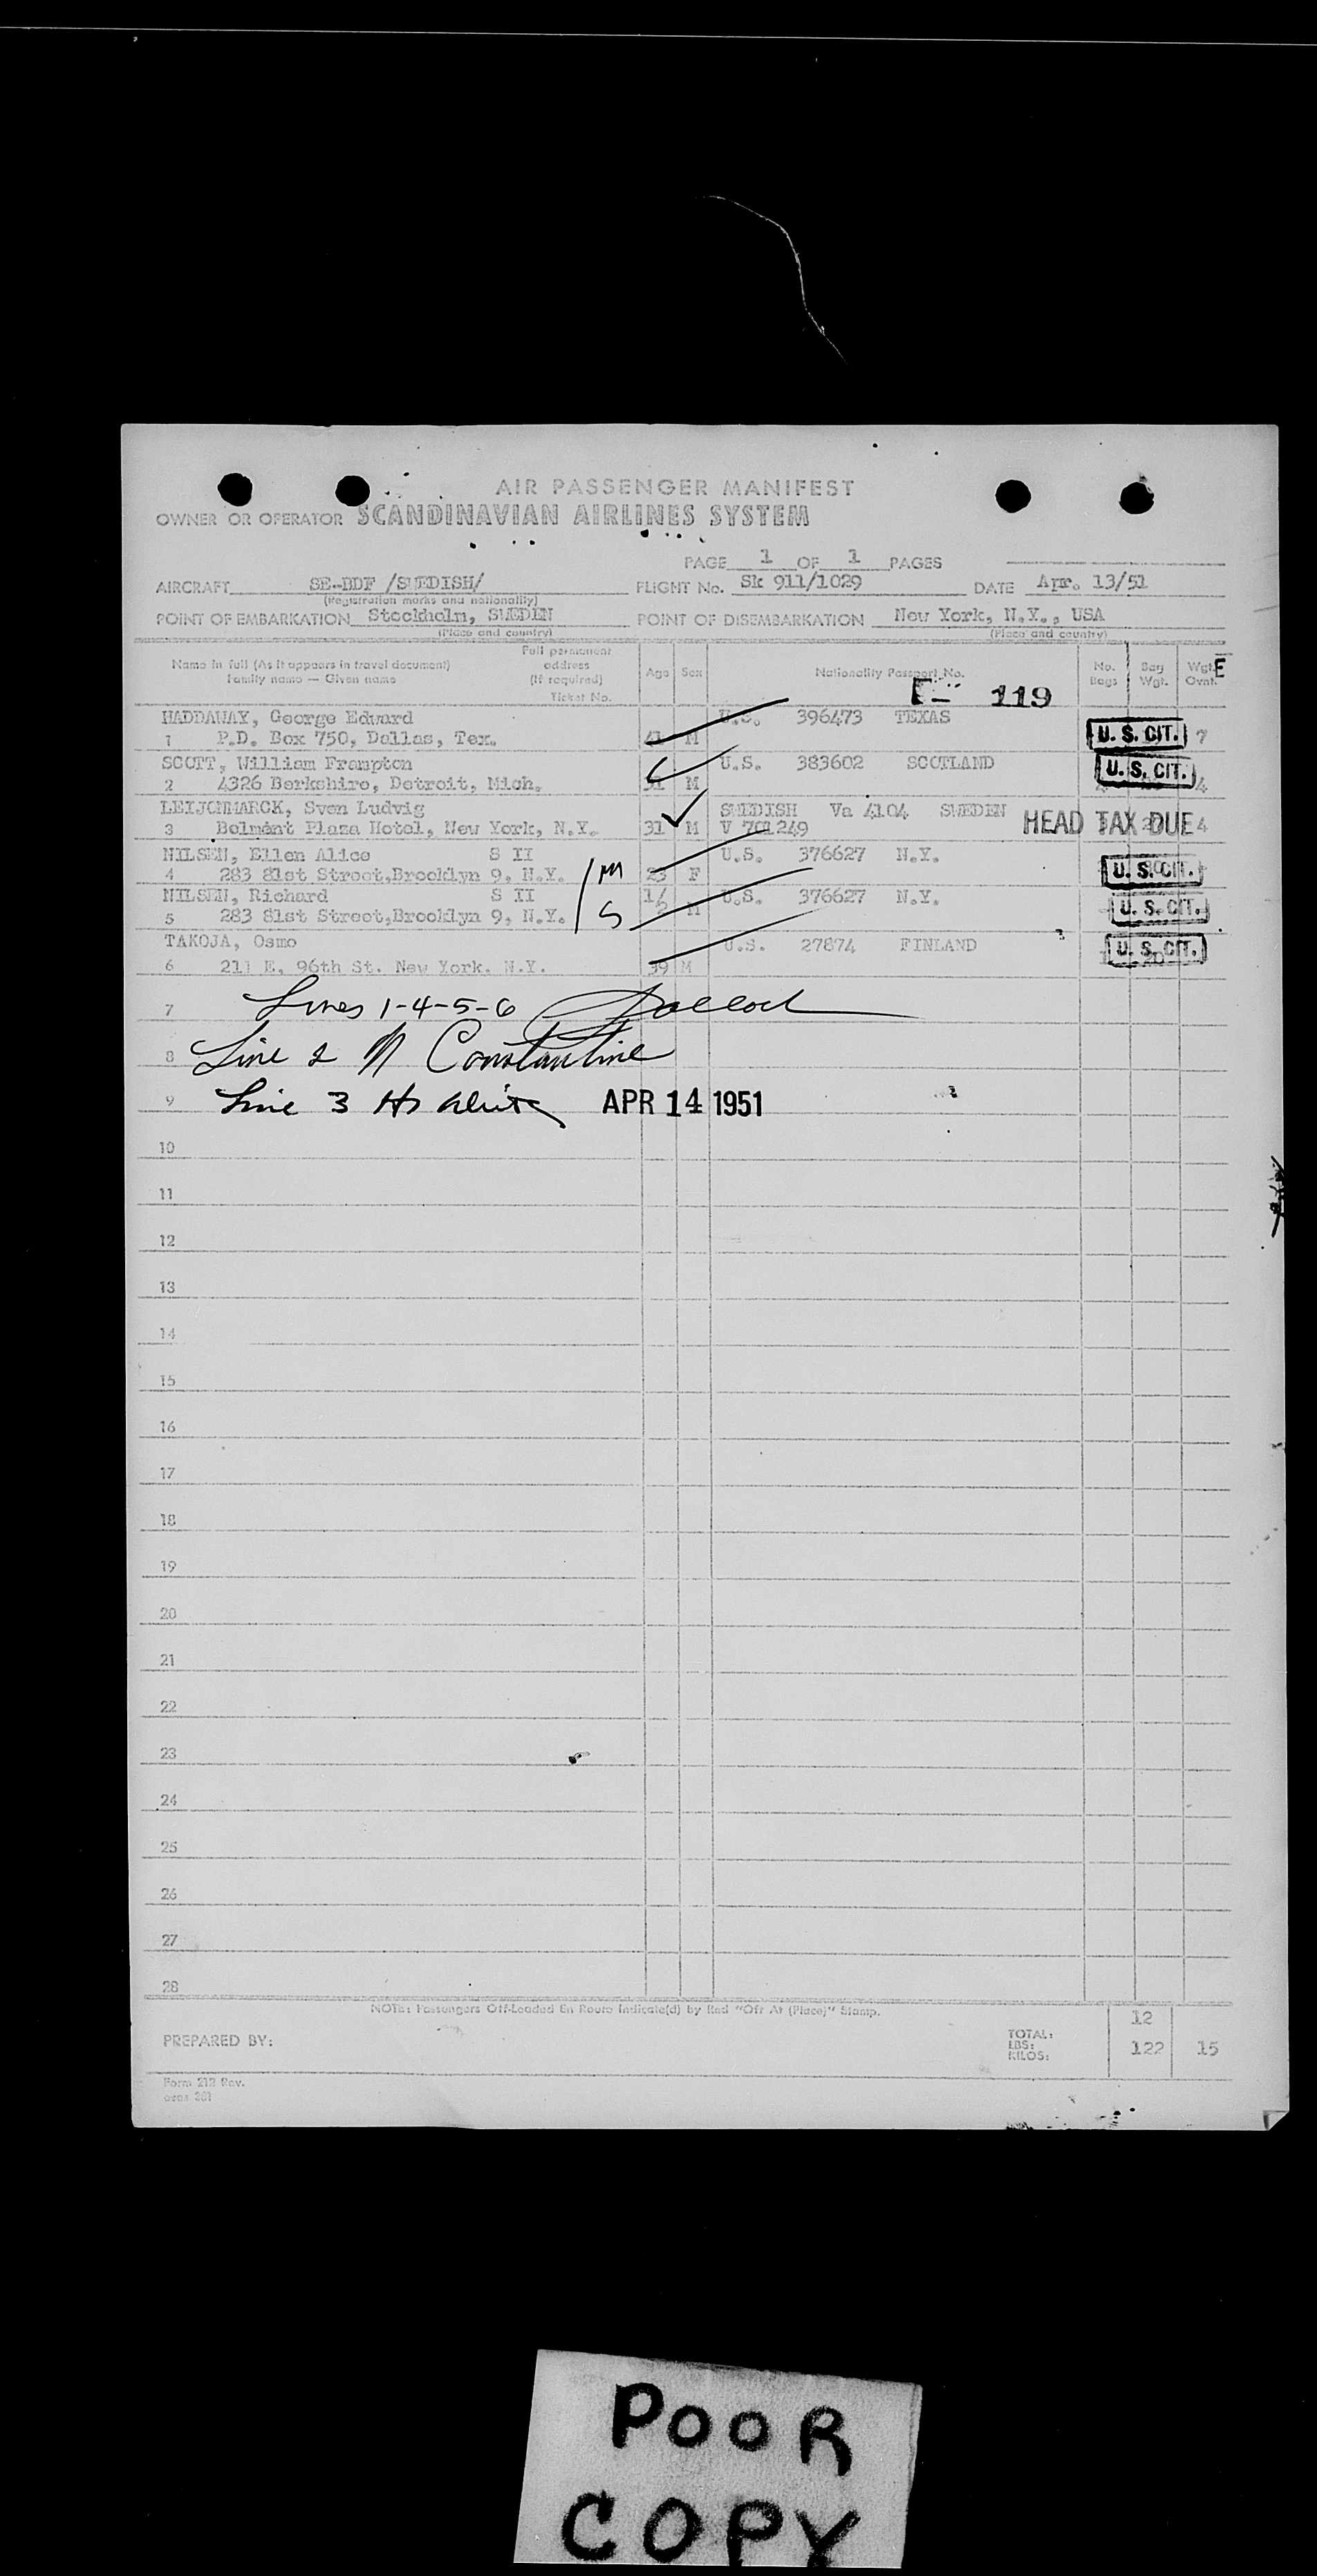 AIR PASSENGER MANIFEST
OWNER OR OPERATOR SCANDINAVIAN AIRLINES SYSTEM
PAGE 1 OF 1 PAGES
AIRCRAFT SE-BDF /SWEDISH/ FLIGHT No. Sk 911/1029 DATE Apr. 13/51
(Registration marks and nationality)
POINT OF EMBARKATION Stockholm, SWEDEN POINT OF DISEMBARKATION New York, N.Y., USA
(Place and country) (Place and country)
Name in full (As it appears in travel document)
Family name — Given name
Full permanent
address
(If required)
Ticket No.
Age Sex Nationality Passport No. No. Bags Bag Wgt. Wgt. Ovnt. E
119
HADDAWAY, George Edward U.S. 396473 TEXAS
1 P.O. Box 750, Dallas, Tex. 41 M U. S. CIT. 7
SCOTT, William Frampton U.S. 383602 SCOTLAND
2 4326 Berkshire, Detroit, Mich. M U. S. CIT. 4
LEIJONMARCK, Sven Ludvig SWEDISH Va 4104 SWEDEN
3 Belmont Plaza Hotel, New York, N.Y. 31 M V 701249 HEAD TAX DUE 4
NILSEN, Ellen Alice S II U.S. 376627 N.Y.
4 283 81st Street,Brooklyn 9, N.Y. M 23 F U. S. CIT.
NILSEN, Richard S II 1/2 U.S. 376627 N.Y.
5 283 81st Street,Brooklyn 9, N.Y. S M U. S. CIT.
TAKOJA, Osmo U.S. 27874 FINLAND
6 211 E. 96th St. New York. N.Y. 39 M U. S. CIT.
7 Lines 1-4-5-6
8 Line 2 N Constantine
9 Line 3 APR 14 1951
10
11
12
13
14
15
16
17
18
19
20
21
22
23
24
25
26
27
28
NOTE: Passengers Off-Loaded En Route Indicate(d) by Red "Ofr At (Place)" Stamp.
12
PREPARED BY: TOTAL:
LBS: 122 15
KILOS:
Form 212 Rev.
POOR
COPY